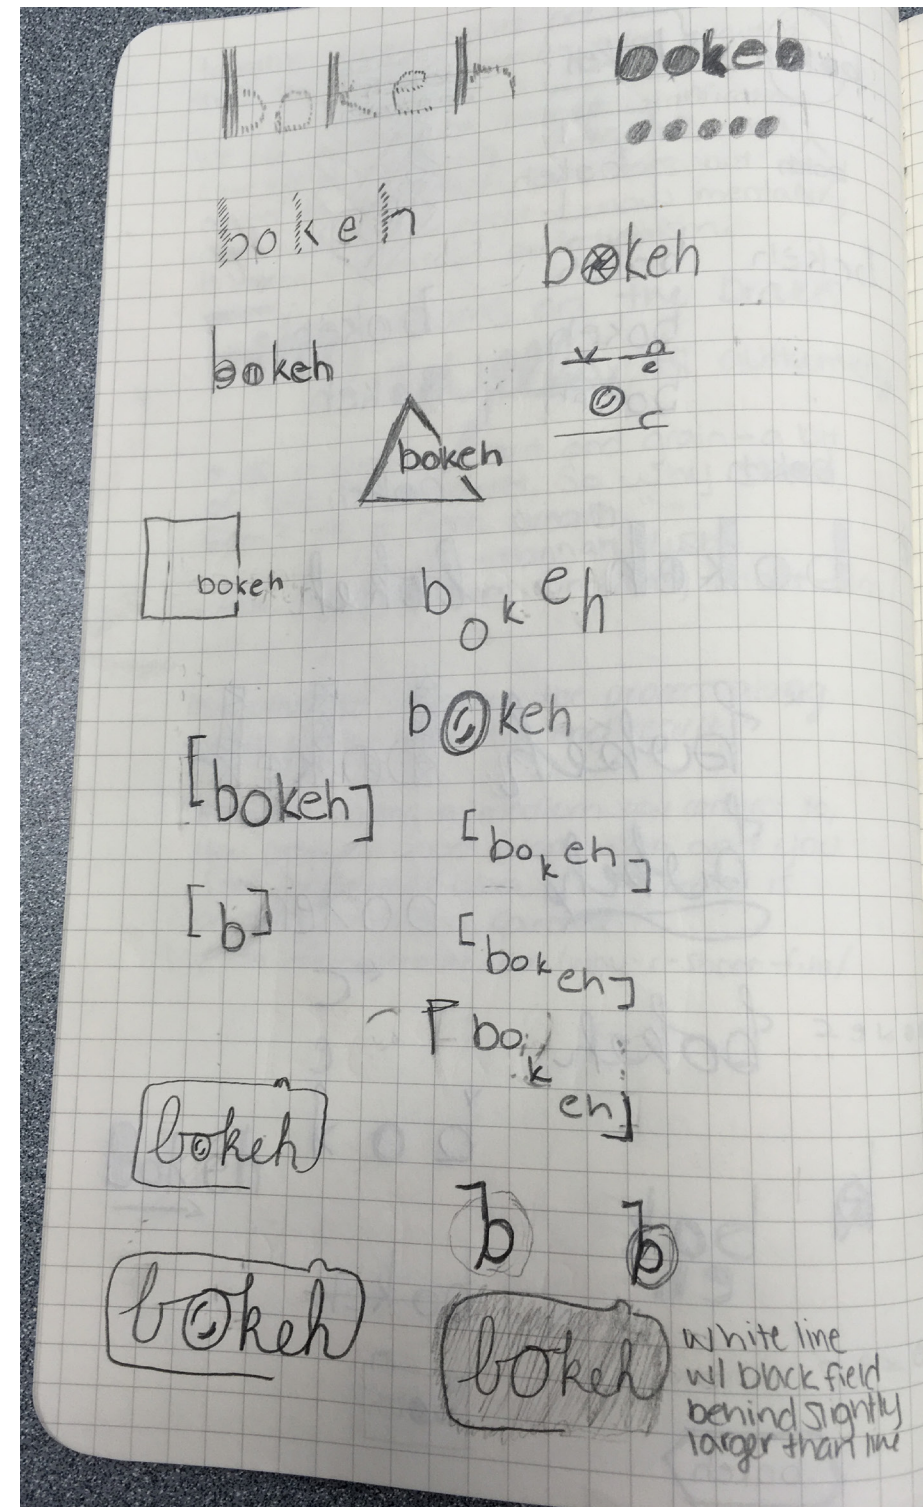 bokeh
bokeh
bokeh
bokeh
bokeh
bokeh
bokeh
bokeh
bokeh
[bokeh]
[bokeh]
[b]
[bokeh]
bo
k
eh]
bokeh
b
b
bokeh
bokeh
white line
w/ black field
behind slightly
larger than line